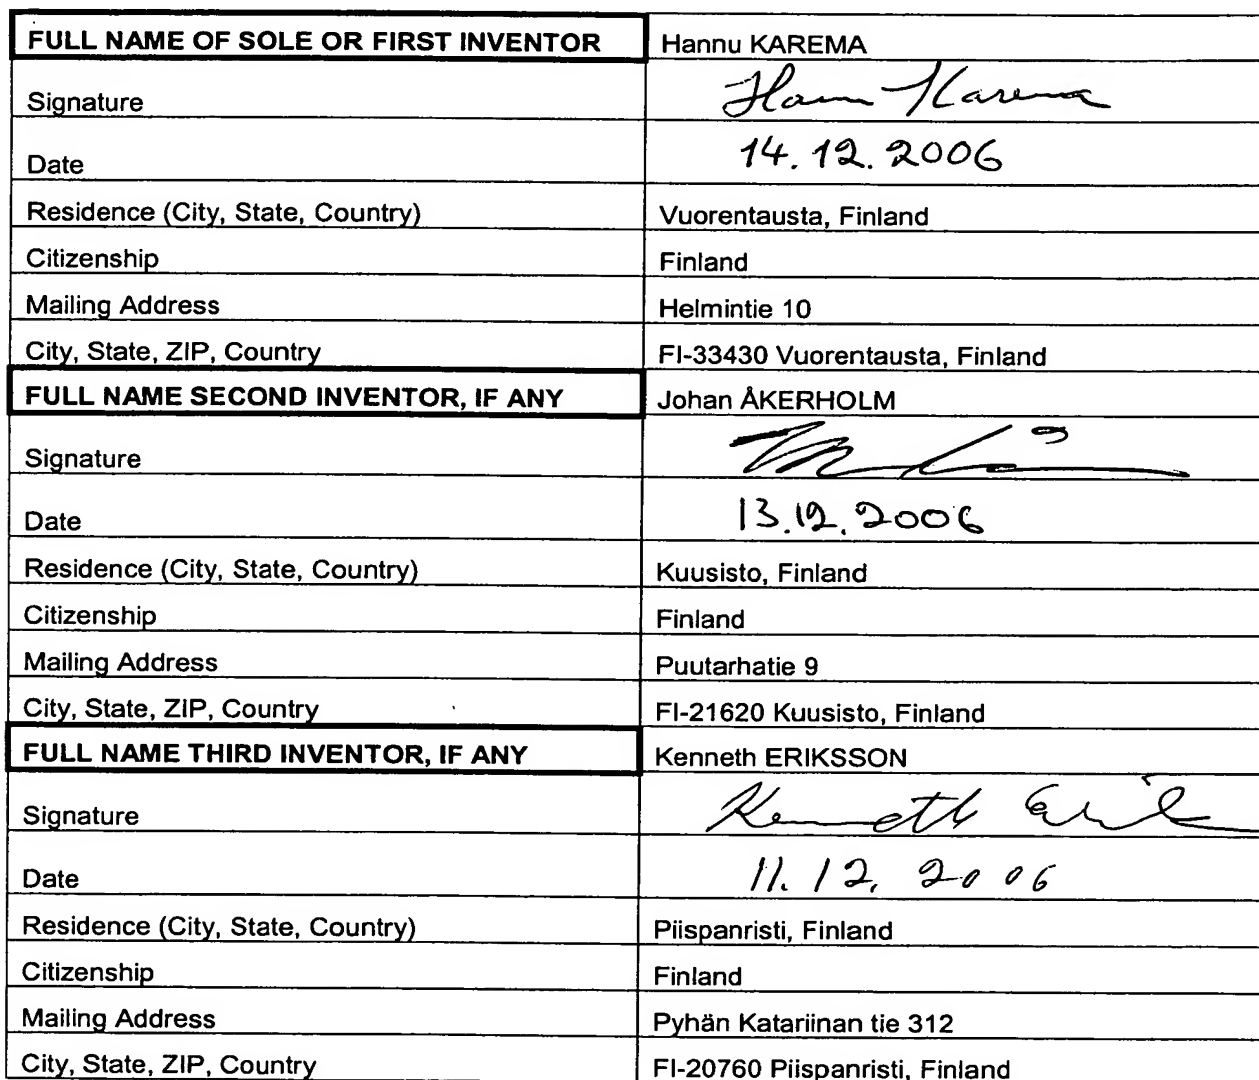 FULL NAME OF SOLE OR FIRST INVENTOR Hannu KAREMA
Signature Hannu Karema
Date 14.12.2006
Residence (City, State, Country) Vuorentausta, Finland
Citizenship Finland
Mailing Address Helmintie 10
City, State, ZIP, Country FI-33430 Vuorentausta, Finland
FULL NAME SECOND INVENTOR, IF ANY Johan ÅKERHOLM
Signature
Date 13.12.2006
Residence (City, State, Country) Kuusisto, Finland
Citizenship Finland
Mailing Address Puutarhatie 9
City, State, ZIP, Country FI-21620 Kuusisto, Finland
FULL NAME THIRD INVENTOR, IF ANY Kenneth ERIKSSON
Signature Kenneth
Date 11.12.2006
Residence (City, State, Country) Piispanristi, Finland
Citizenship Finland
Mailing Address Pyhän Katariinan tie 312
City, State, ZIP, Country FI-20760 Piispanristi, Finland